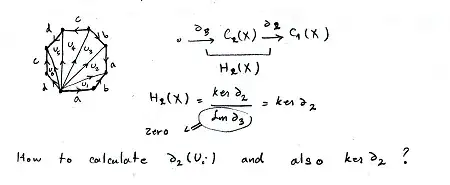 c
d b
c U₆ U₅ U₄ U₃ U₂ a
d U₁ b
a
0 →∂₃ C₂(X) →∂₂ C₁(X)
H₂(X)
H₂(X) = ker ∂₂ / Im ∂₃ = ker ∂₂
zero
How to calculate ∂₂(Uᵢ) and also ker ∂₂ ?